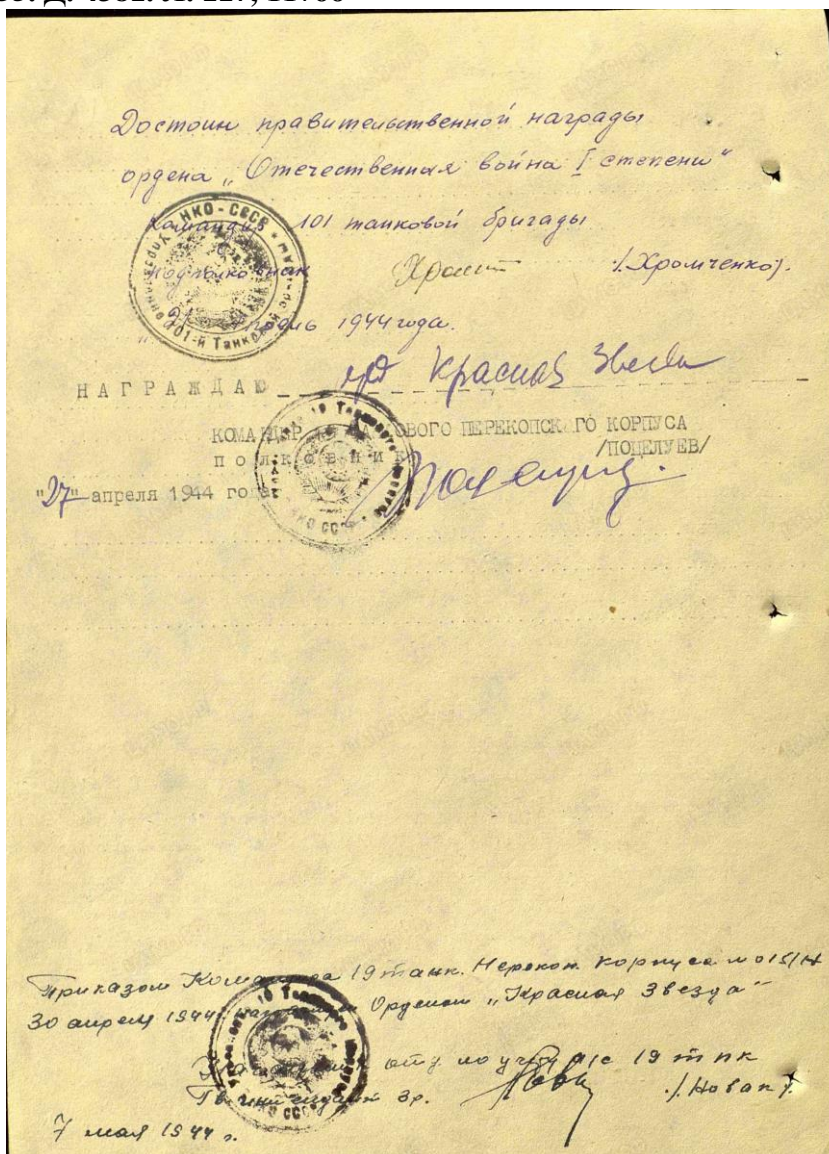 Достоин правительственной награды
ордена „Отечественная война I степени“
Командир 101 танковой бригады
подполковник /Хромченко/.
апрель 1944 года.
НАГРАЖДАЮ орд Красная Звезда
КОМАНДИР ТАНКОВОГО ПЕРЕКОПСКОГО КОРПУСА
полковник /ПОЦЕЛУЕВ/
"27" апреля 1944 года
Приказом Командира 19 танк. Перекоп. корпуса № 015/Н
30 апреля 1944 Орденом „Красная Звезда“
отд по уч 19 тк
/Новак/.
7 мая 1944 г.